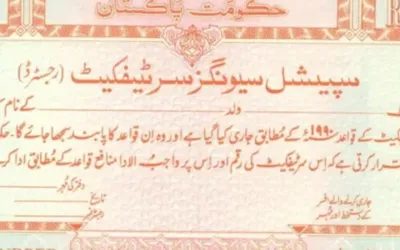 حکومت پاکستان
سپیشل سیونگز سرٹیفکیٹ (رجسٹرڈ)
ولد کے نام
کیٹ کے قواعد ۱۹۹۰ء کے مطابق جاری کیا گیا ہے اور وہ ان قواعد کا پابند سمجھا جائے گا۔
قرار کرتی ہے کہ اس سرٹیفکیٹ کی رقم اور اس پر واجب الادا منافع قواعد کے مطابق ادا
جاری کرنے والے افسر دفتر کی مہر
کے دستخط اور مہر تاریخ
رجسٹر نمبر